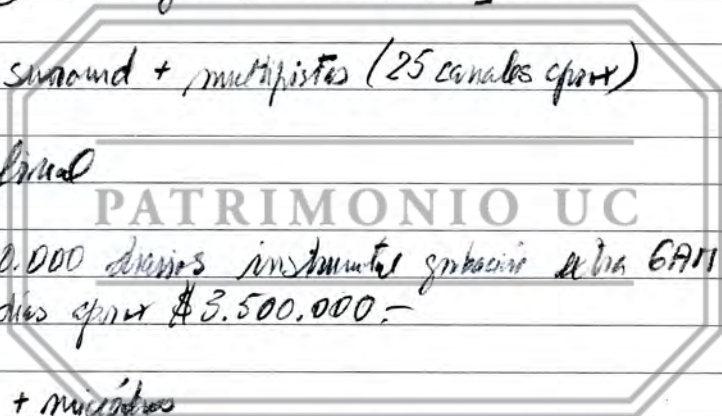 surround + multipistas (25 canales aprox)
lineal
PATRIMONIO UC
0.000 diarios instrumental grabación extra GAM
días aprox $3.500.000.-
+ micrófonos